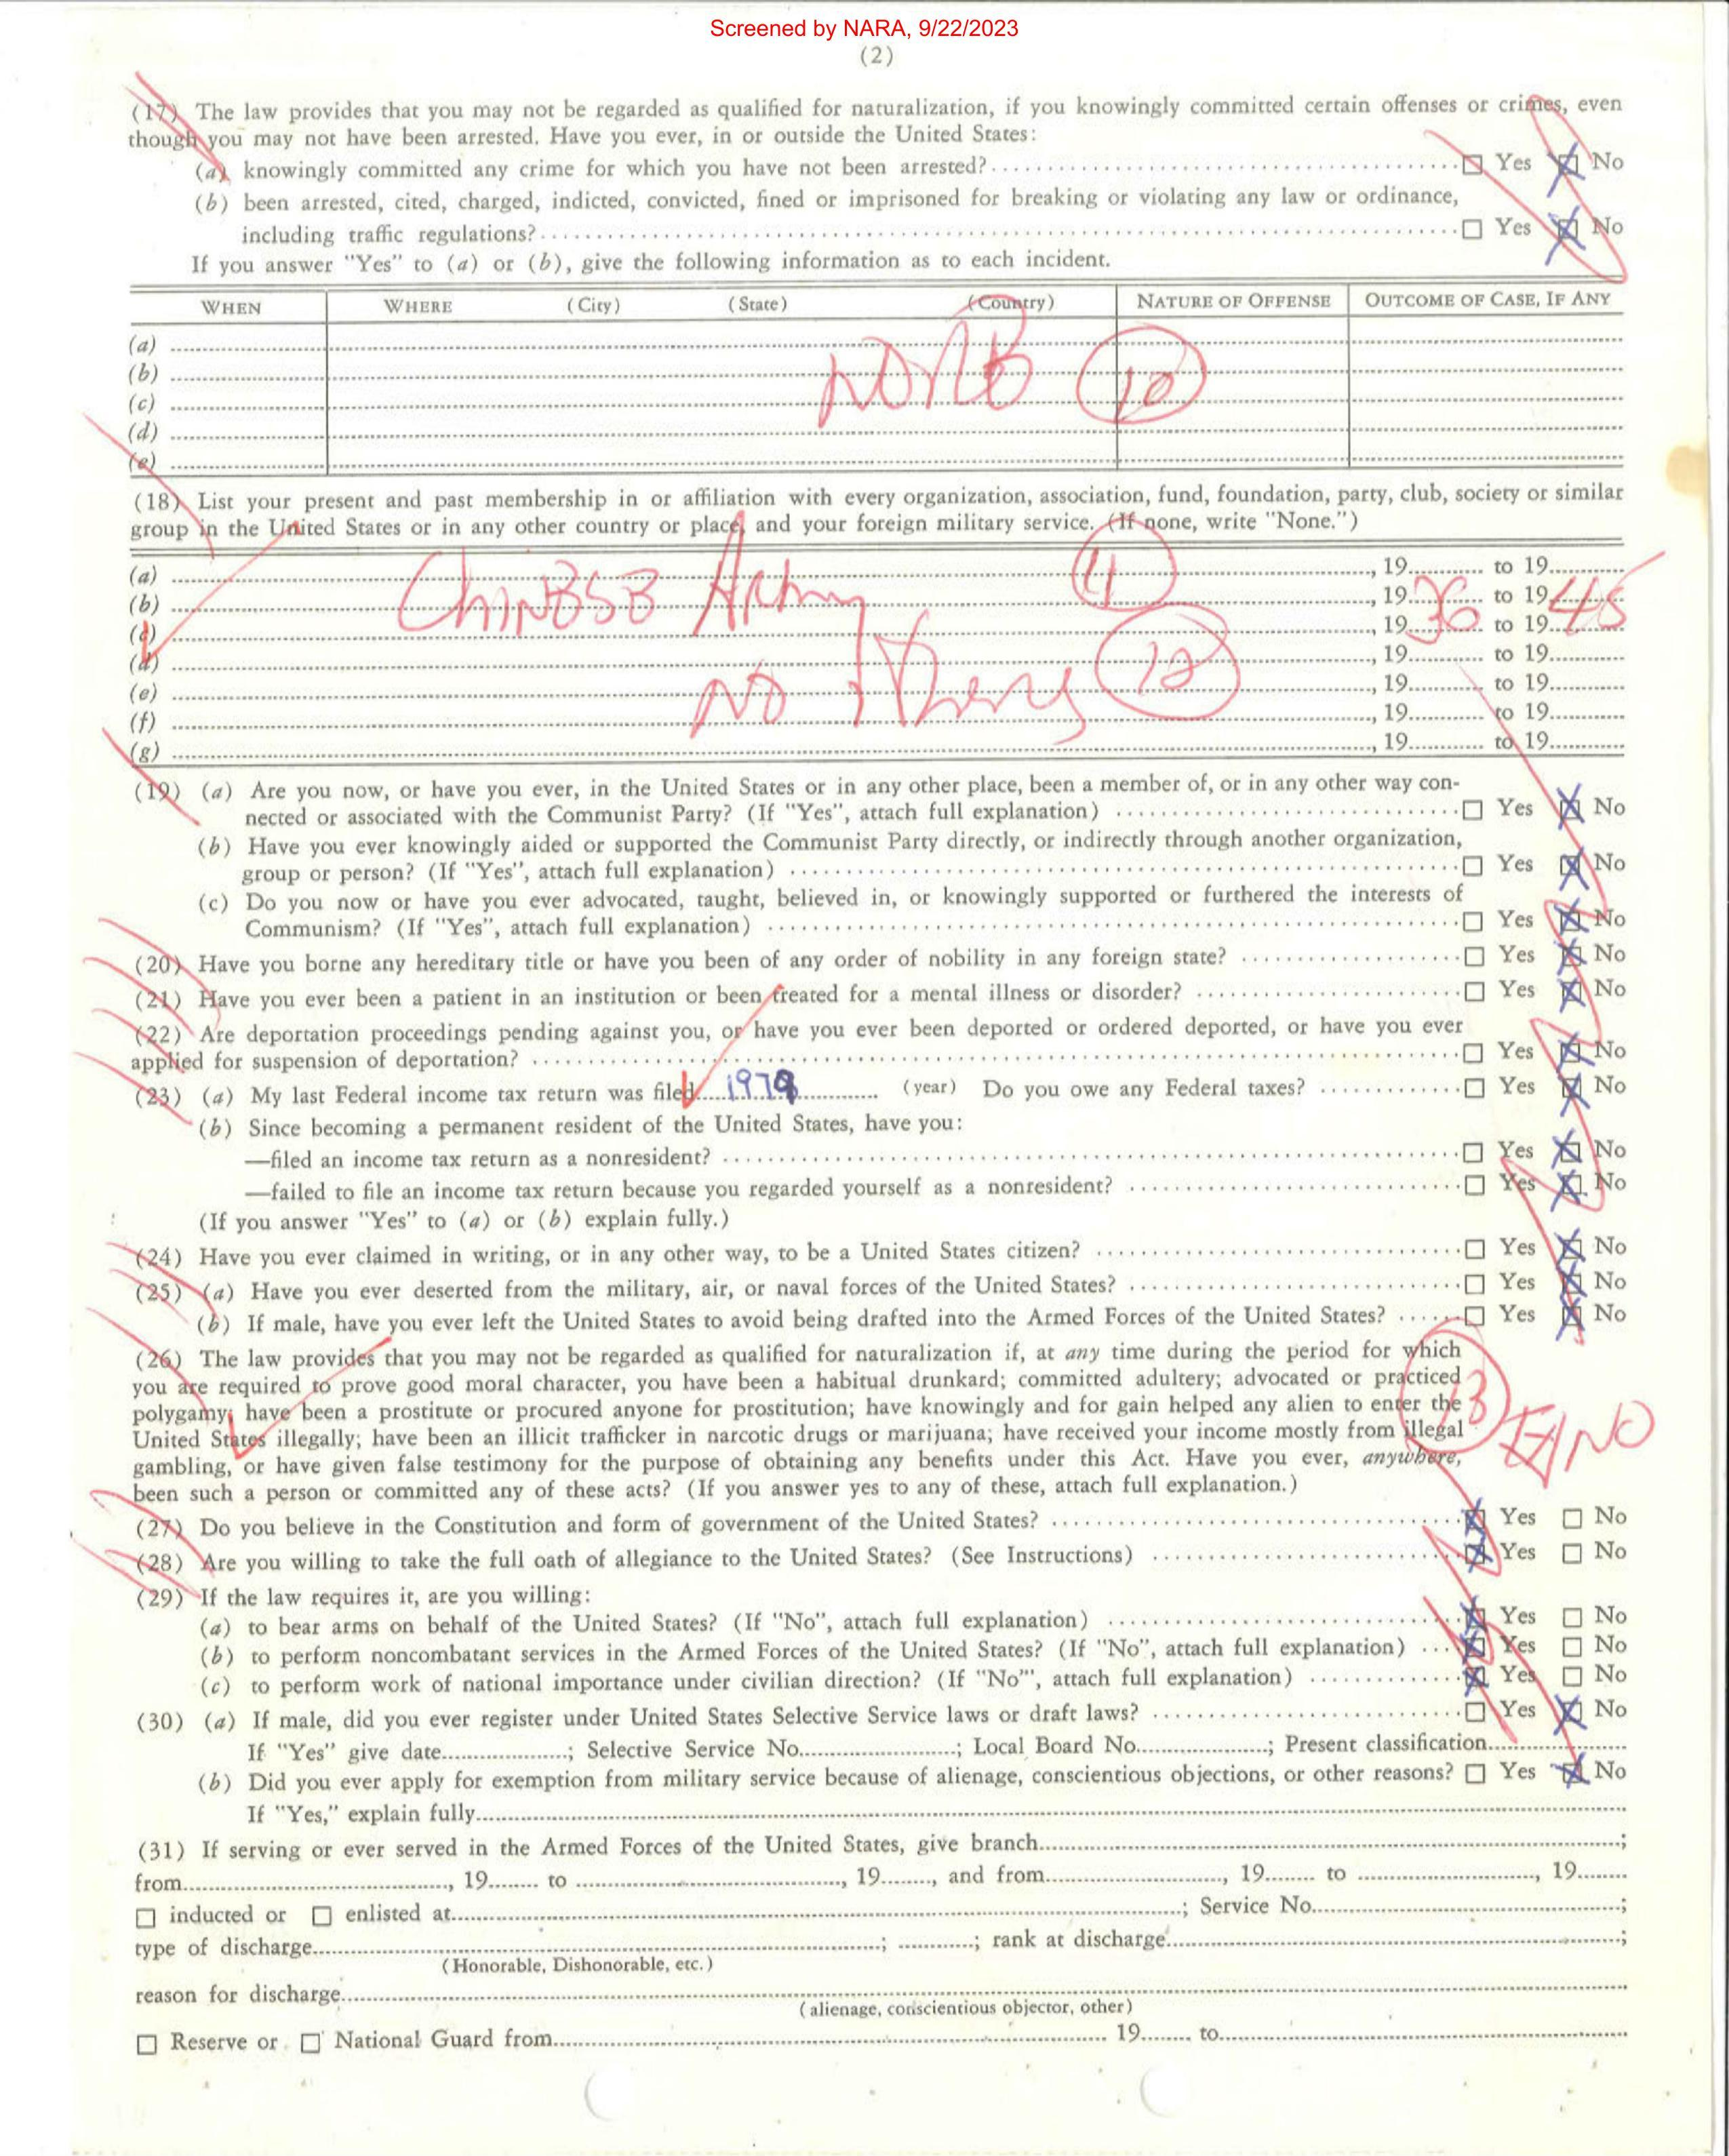 Screened by NARA, 9/22/2023
(2)
(17) The law provides that you may not be regarded as qualified for naturalization, if you knowingly committed certain offenses or crimes, even
though you may not have been arrested. Have you ever, in or outside the United States:
(a) knowingly committed any crime for which you have not been arrested? ☐ Yes ☒ No
(b) been arrested, cited, charged, indicted, convicted, fined or imprisoned for breaking or violating any law or ordinance,
including traffic regulations? ☐ Yes ☒ No
If you answer "Yes" to (a) or (b), give the following information as to each incident.
WHEN WHERE (City) (State) (Country) NATURE OF OFFENSE OUTCOME OF CASE, IF ANY
(a)
(b)
(c) NONE 10
(d)
(e)
(18) List your present and past membership in or affiliation with every organization, association, fund, foundation, party, club, society or similar
group in the United States or in any other country or place, and your foreign military service. (If none, write "None.")
(a) , 19 to 19
(b) CHINESE ARmy 11 , 19 36 to 19 45
(c) , 19 to 19
(d) , 19 to 19
(e) NO 12 , 19 to 19
(f) , 19 to 19
(g) , 19 to 19
(19) (a) Are you now, or have you ever, in the United States or in any other place, been a member of, or in any other way con-
nected or associated with the Communist Party? (If "Yes", attach full explanation) ☐ Yes ☒ No
(b) Have you ever knowingly aided or supported the Communist Party directly, or indirectly through another organization,
group or person? (If "Yes", attach full explanation) ☐ Yes ☒ No
(c) Do you now or have you ever advocated, taught, believed in, or knowingly supported or furthered the interests of
Communism? (If "Yes", attach full explanation) ☐ Yes ☒ No
(20) Have you borne any hereditary title or have you been of any order of nobility in any foreign state? ☐ Yes ☒ No
(21) Have you ever been a patient in an institution or been treated for a mental illness or disorder? ☐ Yes ☒ No
(22) Are deportation proceedings pending against you, or have you ever been deported or ordered deported, or have you ever
applied for suspension of deportation? ☐ Yes ☒ No
(23) (a) My last Federal income tax return was filed 1979 (year) Do you owe any Federal taxes? ☐ Yes ☒ No
(b) Since becoming a permanent resident of the United States, have you:
—filed an income tax return as a nonresident? ☐ Yes ☒ No
—failed to file an income tax return because you regarded yourself as a nonresident? ☐ Yes ☒ No
(If you answer "Yes" to (a) or (b) explain fully.)
(24) Have you ever claimed in writing, or in any other way, to be a United States citizen? ☐ Yes ☒ No
(25) (a) Have you ever deserted from the military, air, or naval forces of the United States? ☐ Yes ☒ No
(b) If male, have you ever left the United States to avoid being drafted into the Armed Forces of the United States? ☐ Yes ☒ No
(26) The law provides that you may not be regarded as qualified for naturalization if, at any time during the period for which
you are required to prove good moral character, you have been a habitual drunkard; committed adultery; advocated or practiced
polygamy; have been a prostitute or procured anyone for prostitution; have knowingly and for gain helped any alien to enter the 13
United States illegally; have been an illicit trafficker in narcotic drugs or marijuana; have received your income mostly from illegal NO
gambling, or have given false testimony for the purpose of obtaining any benefits under this Act. Have you ever, anywhere,
been such a person or committed any of these acts? (If you answer yes to any of these, attach full explanation.)
(27) Do you believe in the Constitution and form of government of the United States? ☒ Yes ☐ No
(28) Are you willing to take the full oath of allegiance to the United States? (See Instructions) ☒ Yes ☐ No
(29) If the law requires it, are you willing:
(a) to bear arms on behalf of the United States? (If "No", attach full explanation) ☒ Yes ☐ No
(b) to perform noncombatant services in the Armed Forces of the United States? (If "No", attach full explanation) ☒ Yes ☐ No
(c) to perform work of national importance under civilian direction? (If "No"', attach full explanation) ☒ Yes ☐ No
(30) (a) If male, did you ever register under United States Selective Service laws or draft laws? ☐ Yes ☒ No
If "Yes" give date ; Selective Service No. ; Local Board No. ; Present classification
(b) Did you ever apply for exemption from military service because of alienage, conscientious objections, or other reasons? ☐ Yes ☒ No
If "Yes," explain fully
(31) If serving or ever served in the Armed Forces of the United States, give branch ;
from , 19 to , 19 , and from , 19 to , 19
☐ inducted or ☐ enlisted at ; Service No. ;
type of discharge ; ; rank at discharge ;
(Honorable, Dishonorable, etc.)
reason for discharge
(alienage, conscientious objector, other)
☐ Reserve or ☐ National Guard from 19 to